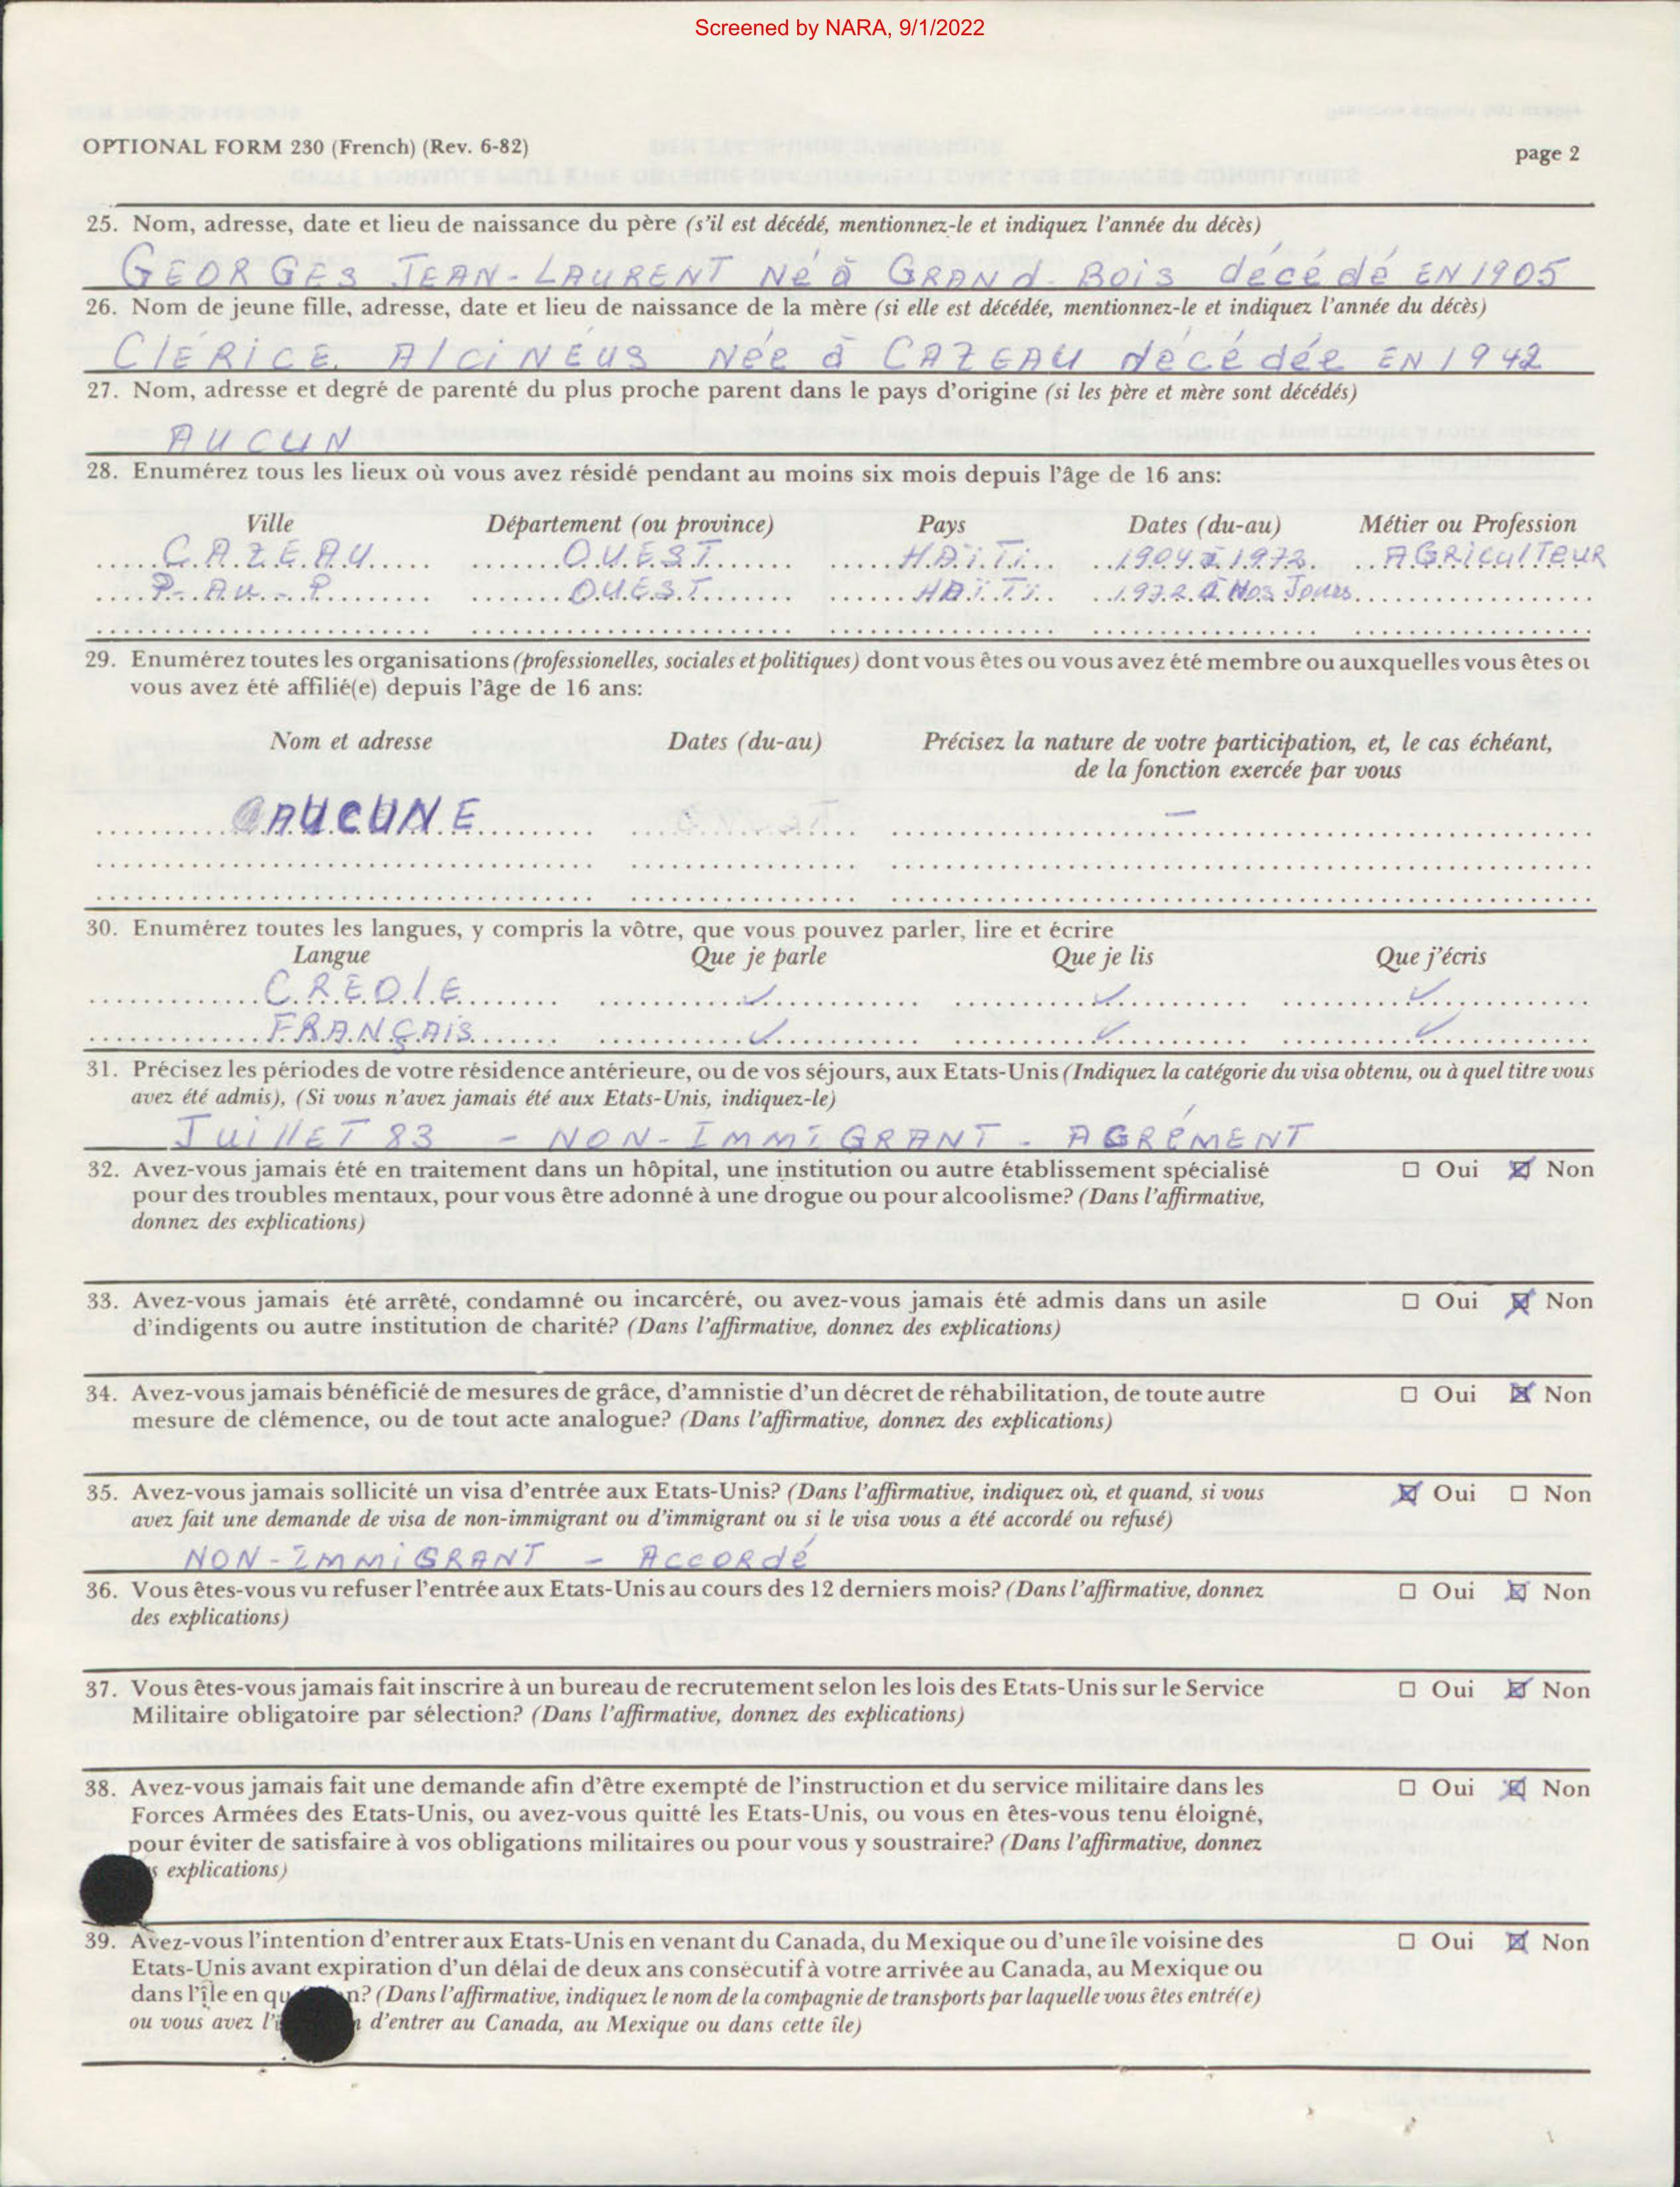 Screened by NARA, 9/1/2022
OPTIONAL FORM 230 (French) (Rev. 6-82)
page 2
25. Nom, adresse, date et lieu de naissance du père (s'il est décédé, mentionnez-le et indiquez l'année du décès)
GEORGES JEAN-LAURENT Né à GRANd-Bois décédé EN 1905
26. Nom de jeune fille, adresse, date et lieu de naissance de la mère (si elle est décédée, mentionnez-le et indiquez l'année du décès)
ClÉRICE AlciNÉUS Née à CAZEAU décédée EN 1942
27. Nom, adresse et degré de parenté du plus proche parent dans le pays d'origine (si les père et mère sont décédés)
AUCUN
28. Enumérez tous les lieux où vous avez résidé pendant au moins six mois depuis l'âge de 16 ans:
Ville Département (ou province) Pays Dates (du-au) Métier ou Profession
CAZEAU OUEST HAÏTi 1904 à 1972 AGRiculTEUR
P-Au-P OUEST HAÏTi 1972 à Nos Jours
29. Enumérez toutes les organisations (professionelles, sociales et politiques) dont vous êtes ou vous avez été membre ou auxquelles vous êtes ou
vous avez été affilié(e) depuis l'âge de 16 ans:
Nom et adresse Dates (du-au) Précisez la nature de votre participation, et, le cas échéant,
de la fonction exercée par vous
AUCUNE —
30. Enumérez toutes les langues, y compris la vôtre, que vous pouvez parler, lire et écrire
Langue Que je parle Que je lis Que j'écris
CREOlE ✓ ✓ ✓
FRANÇAiS ✓ ✓ ✓
31. Précisez les périodes de votre résidence antérieure, ou de vos séjours, aux Etats-Unis (Indiquez la catégorie du visa obtenu, ou à quel titre vous
avez été admis), (Si vous n'avez jamais été aux Etats-Unis, indiquez-le)
JuillET 83 - NON-IMMiGRANT - AGRÉMENT
32. Avez-vous jamais été en traitement dans un hôpital, une institution ou autre établissement spécialisé ☐ Oui ☒ Non
pour des troubles mentaux, pour vous être adonné à une drogue ou pour alcoolisme? (Dans l'affirmative,
donnez des explications)
33. Avez-vous jamais été arrêté, condamné ou incarcéré, ou avez-vous jamais été admis dans un asile ☐ Oui ☒ Non
d'indigents ou autre institution de charité? (Dans l'affirmative, donnez des explications)
34. Avez-vous jamais bénéficié de mesures de grâce, d'amnistie d'un décret de réhabilitation, de toute autre ☐ Oui ☒ Non
mesure de clémence, ou de tout acte analogue? (Dans l'affirmative, donnez des explications)
35. Avez-vous jamais sollicité un visa d'entrée aux Etats-Unis? (Dans l'affirmative, indiquez où, et quand, si vous ☒ Oui ☐ Non
avez fait une demande de visa de non-immigrant ou d'immigrant ou si le visa vous a été accordé ou refusé)
NON-IMMiGRANT - ACCORdé
36. Vous êtes-vous vu refuser l'entrée aux Etats-Unis au cours des 12 derniers mois? (Dans l'affirmative, donnez ☐ Oui ☒ Non
des explications)
37. Vous êtes-vous jamais fait inscrire à un bureau de recrutement selon les lois des Etats-Unis sur le Service ☐ Oui ☒ Non
Militaire obligatoire par sélection? (Dans l'affirmative, donnez des explications)
38. Avez-vous jamais fait une demande afin d'être exempté de l'instruction et du service militaire dans les ☐ Oui ☒ Non
Forces Armées des Etats-Unis, ou avez-vous quitté les Etats-Unis, ou vous en êtes-vous tenu éloigné,
pour éviter de satisfaire à vos obligations militaires ou pour vous y soustraire? (Dans l'affirmative, donnez
explications)
39. Avez-vous l'intention d'entrer aux Etats-Unis en venant du Canada, du Mexique ou d'une île voisine des ☐ Oui ☒ Non
Etats-Unis avant expiration d'un délai de deux ans consécutif à votre arrivée au Canada, au Mexique ou
dans l'île en n? (Dans l'affirmative, indiquez le nom de la compagnie de transports par laquelle vous êtes entré(e)
ou vous avez d'entrer au Canada, au Mexique ou dans cette île)